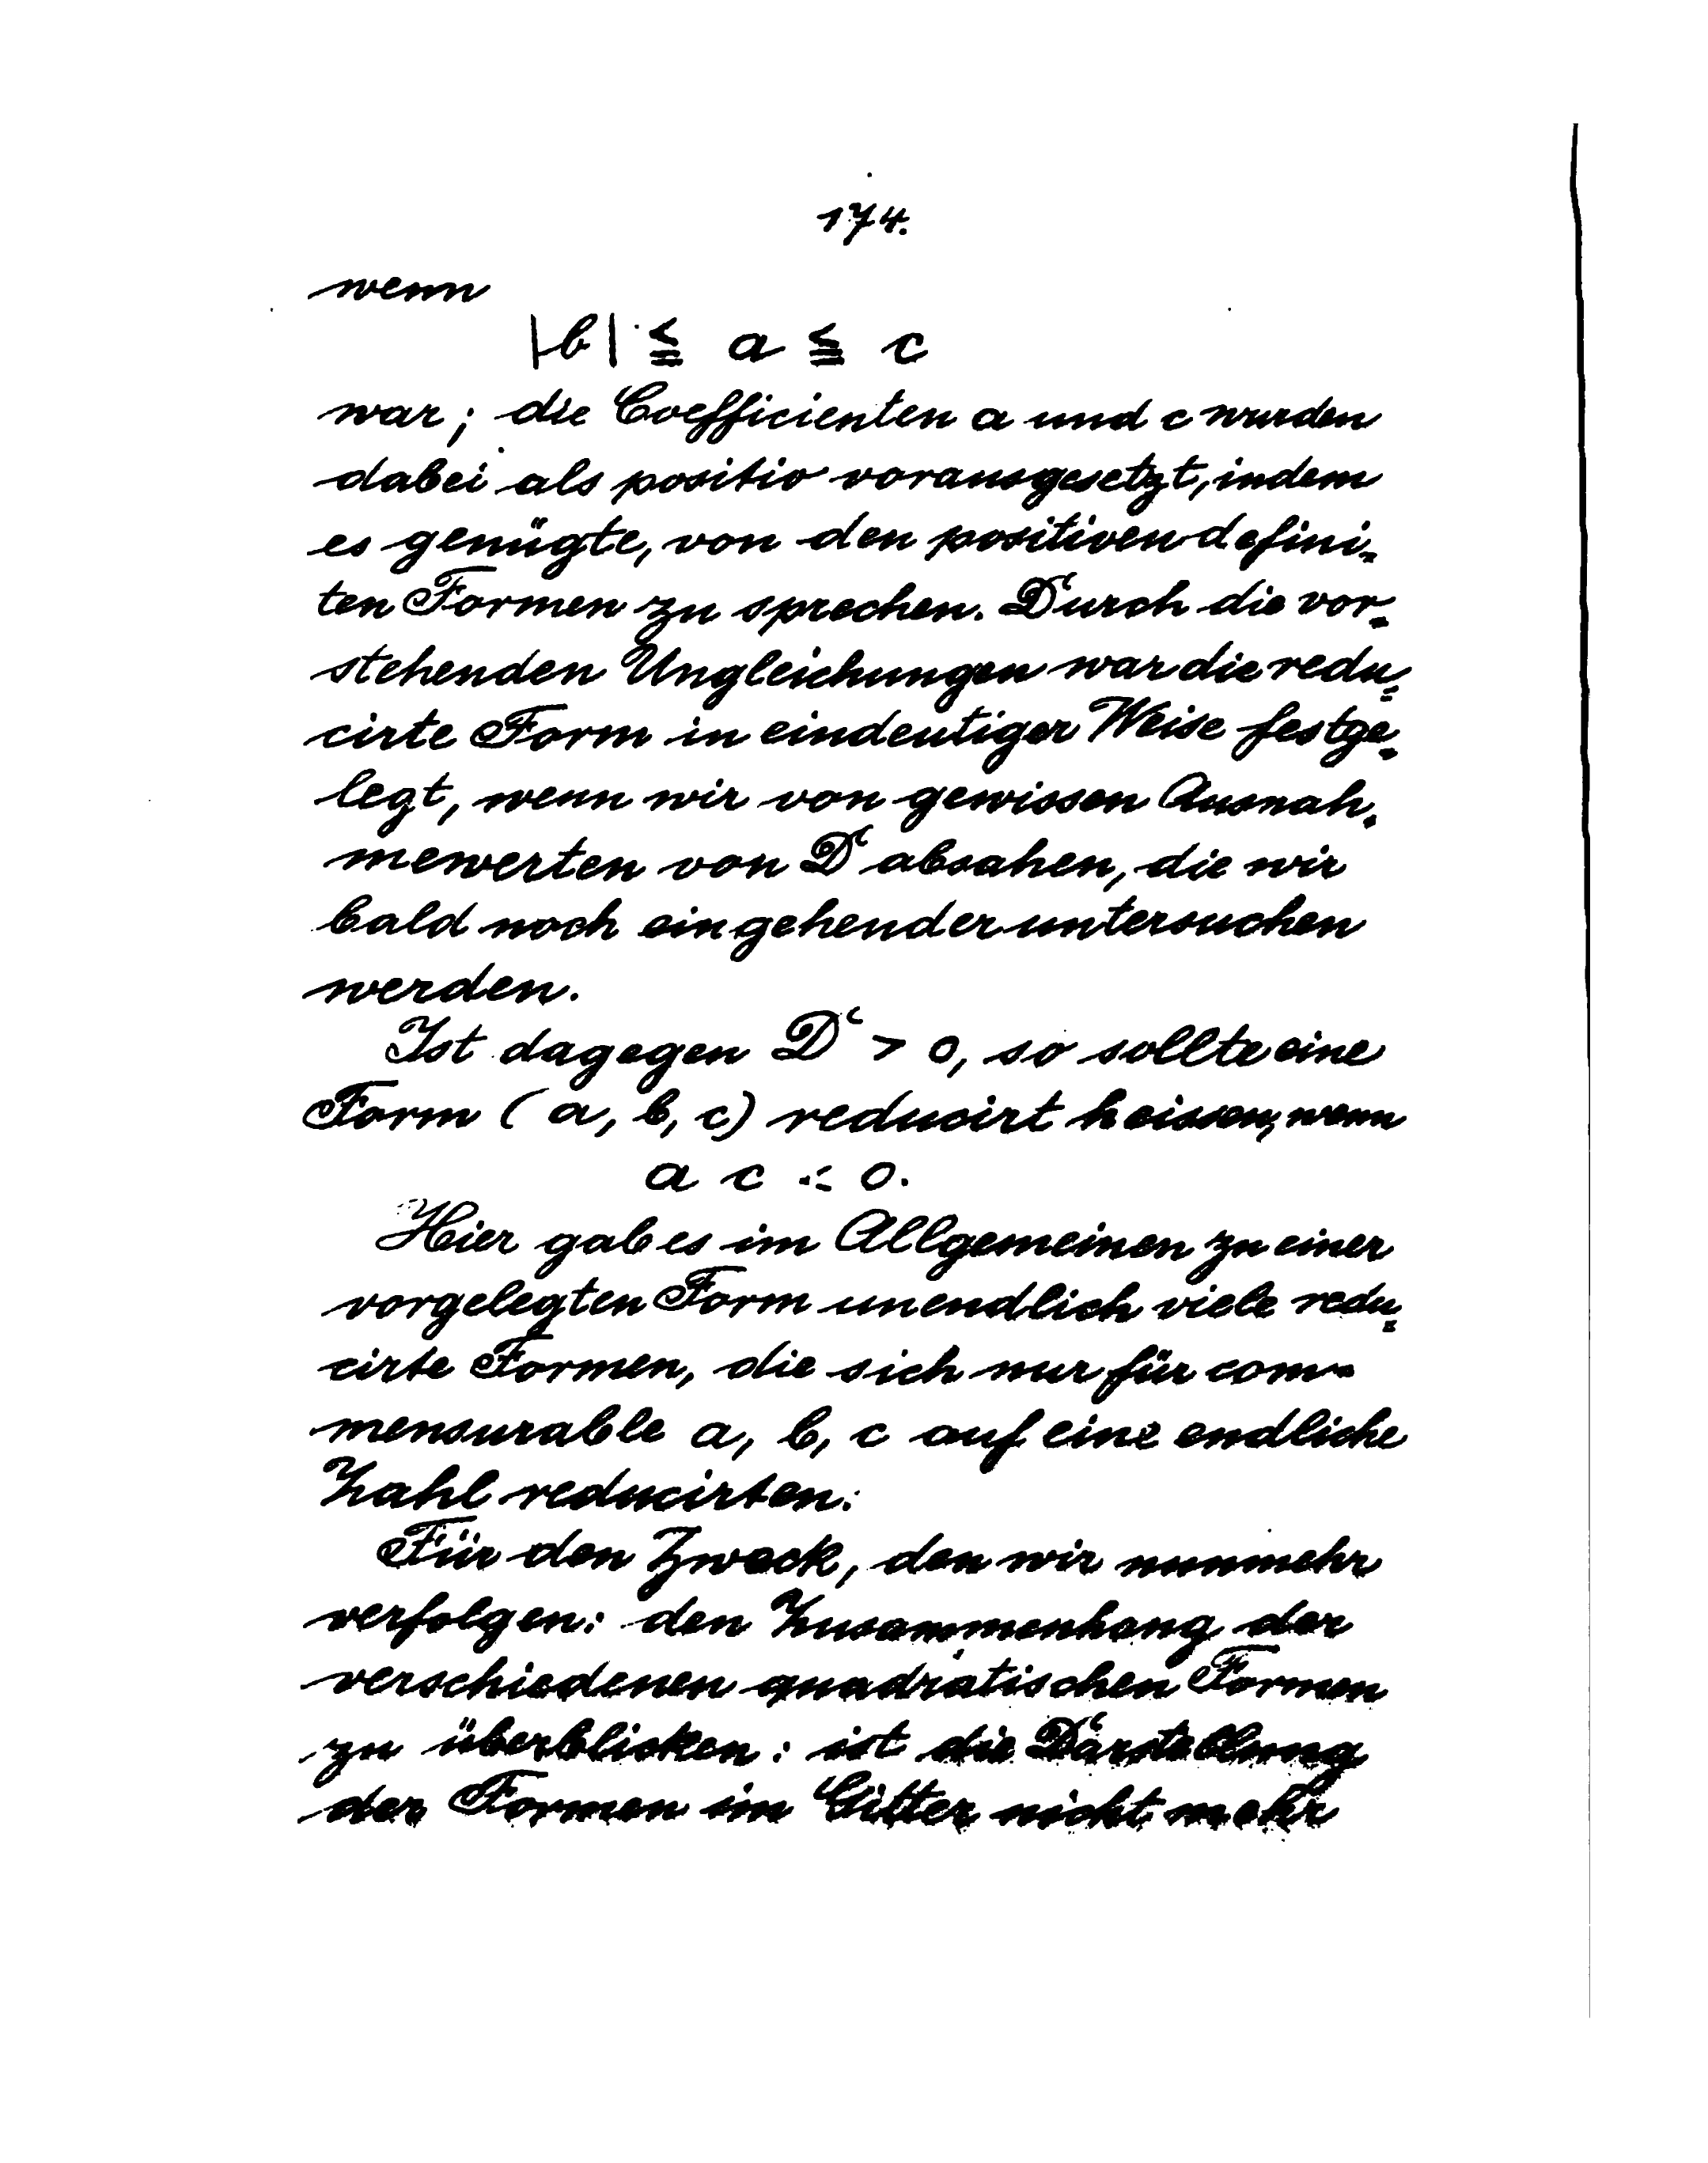 174.
wenn
|b| ≦ a ≦ c
war; die Coefficienten a und c wurden
dabei als positiv vorausgesetzt, indem
es genügte, von den positiven defini-
ten Formen zu sprechen. Durch die vor-
stehenden Ungleichungen war die redu-
cirte Form in eindeutiger Weise festge-
legt, wenn wir von gewissen Ausnah-
mewerten von D absahen, die wir
bald noch eingehender untersuchen
werden.
Ist dagegen D > 0, so sollte eine
Form (a, b, c) reducirt heissen, wenn
a c < 0.
Hier gab es im Allgemeinen zu einer
vorgelegten Form unendlich viele redu-
cirte Formen, die sich nur für com-
mensurable a, b, c auf eine endliche
Zahl reducirten.
Für den Zweck, den wir nunmehr
verfolgen: den Zusammenhang der
verschiedenen quadratischen Formen
zu überblicken: ist die Darstellung
der Formen im Gitter nicht mehr